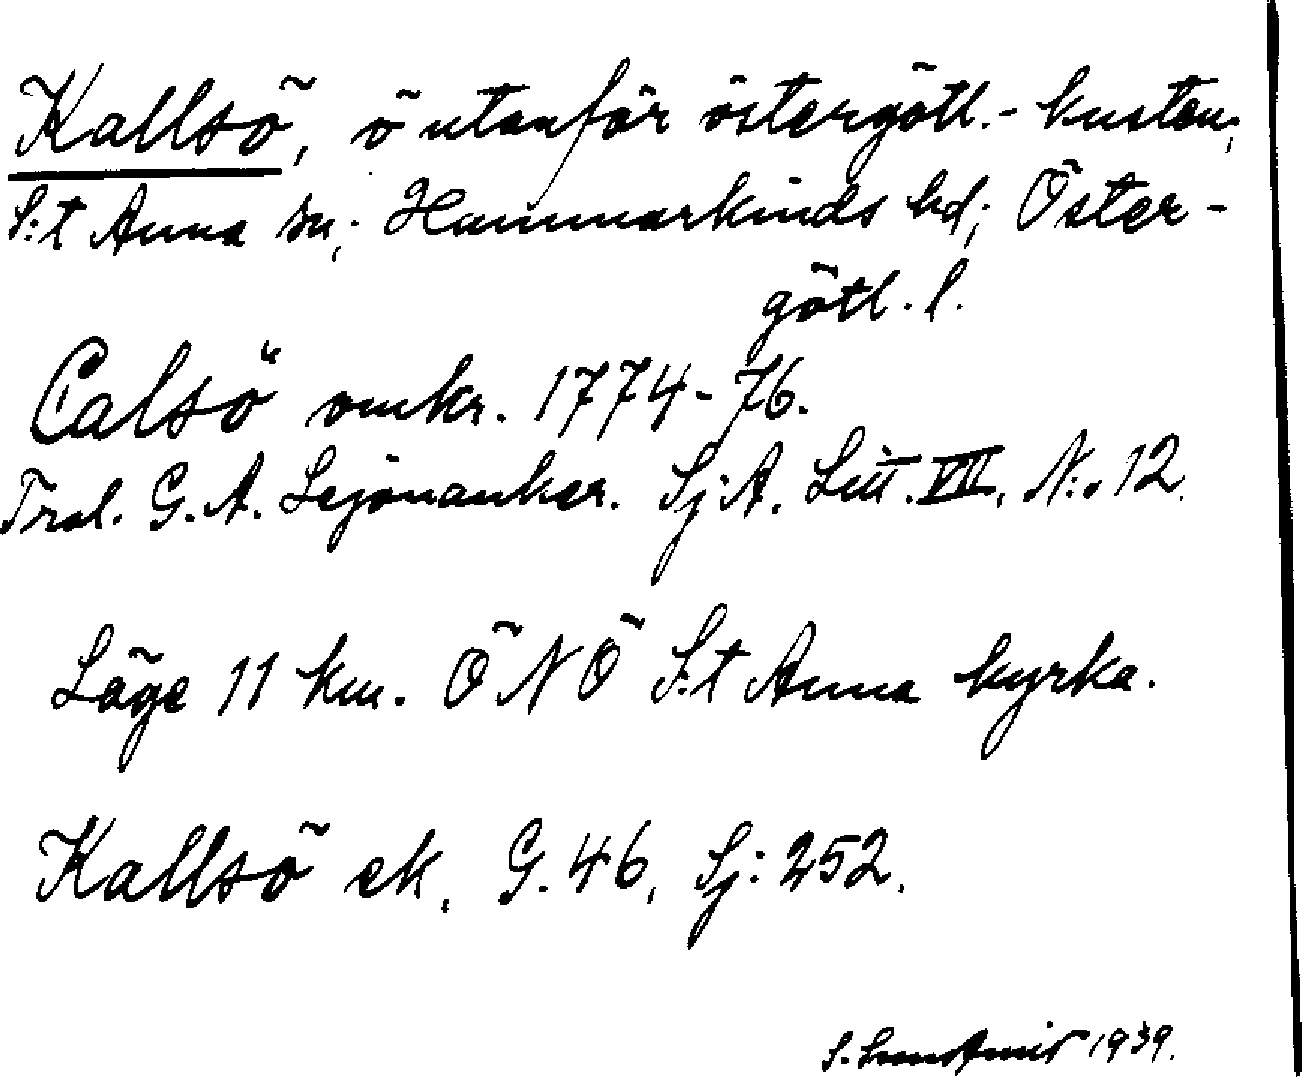 Kallsö, ö utanför östergötl.- kusten;
S:t Anna sn; Hammarkinds hd; Öster-
götl. l.
Calsö omkr. 1774-76.
Trol. G. A. Lejonanker. Sj.A. Litt. VIII, N:o 12.
Läge 11 km. ÖNÖ S:t Anna kyrka.
Kallsö ek. G. 46, Sj: 252.
S. 1939.